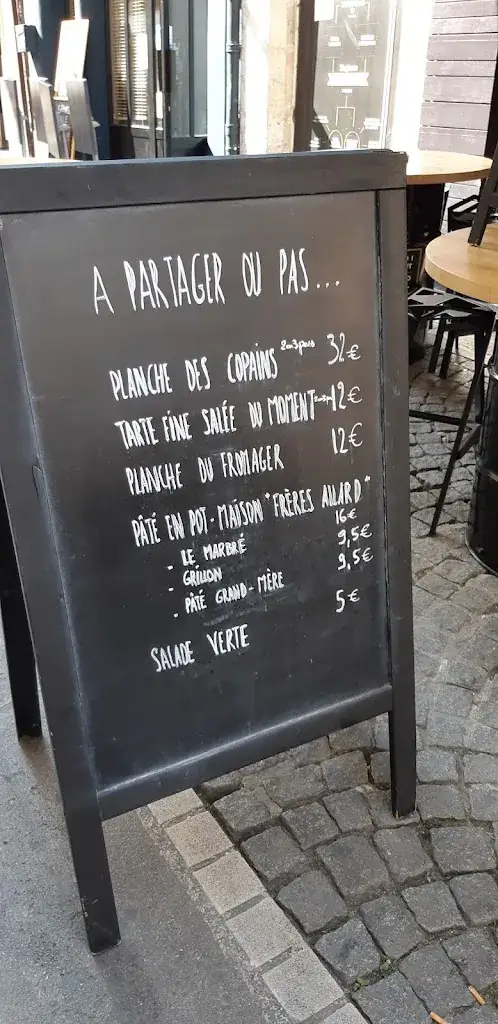 A PARTAGER OU PAS...
PLANCHE DES COPAINS 2 ou 3 pers 32€
TARTE FINE SALÉE DU MOMENT 12€
PLANCHE DU FROMAGER 12€
PÂTÉ EN POT. MAISON "FRÈRES ALLARD"
- LE MARBRÉ 16€
- GRILLON 9,5€
- PÂTÉ GRAND-MÈRE 9,5€
SALADE VERTE 5€